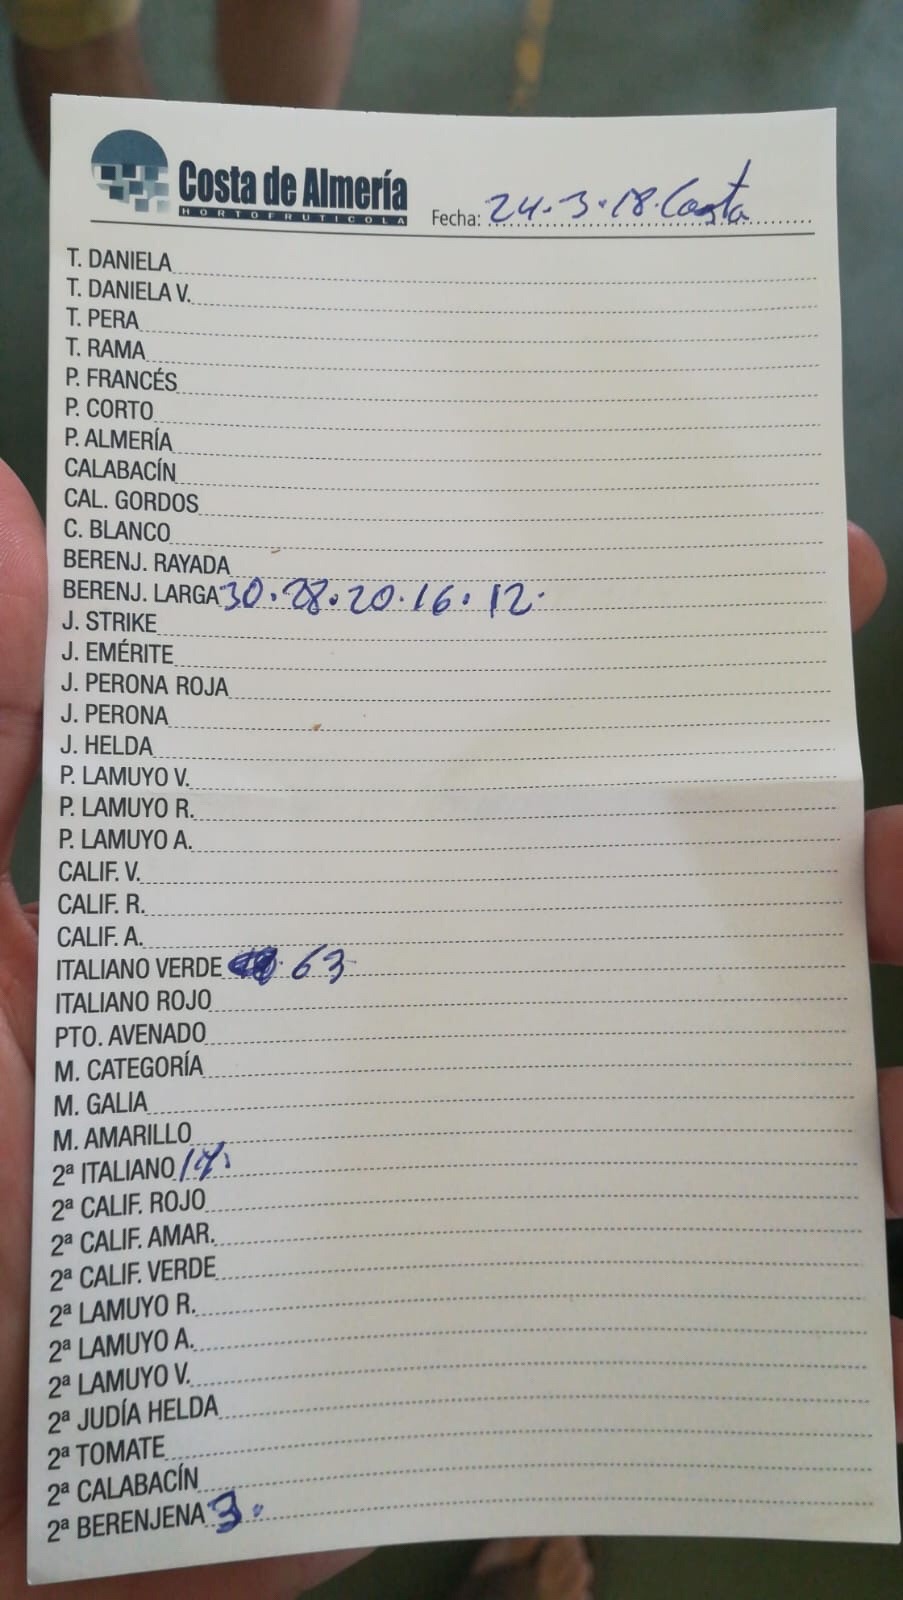 Costa de Almería
HORTOFRUTICOLA
Fecha: 24.3.18. Costa
T. DANIELA
T. DANIELA V.
T. PERA
T. RAMA
P. FRANCÉS
P. CORTO
P. ALMERÍA
CALABACÍN
CAL. GORDOS
C. BLANCO
BERENJ. RAYADA
BERENJ. LARGA 30.28.20.16.12.
J. STRIKE
J. EMÉRITE
J. PERONA ROJA
J. PERONA
J. HELDA
P. LAMUYO V.
P. LAMUYO R.
P. LAMUYO A.
CALIF. V.
CALIF. R.
CALIF. A.
ITALIANO VERDE 63
ITALIANO ROJO
PTO. AVENADO
M. CATEGORÍA
M. GALIA
M. AMARILLO
2ª ITALIANO
2ª CALIF. ROJO
2ª CALIF. AMAR.
2ª CALIF. VERDE
2ª LAMUYO R.
2ª LAMUYO A.
2ª LAMUYO V.
2ª JUDÍA HELDA
2ª TOMATE
2ª CALABACÍN
2ª BERENJENA 3.